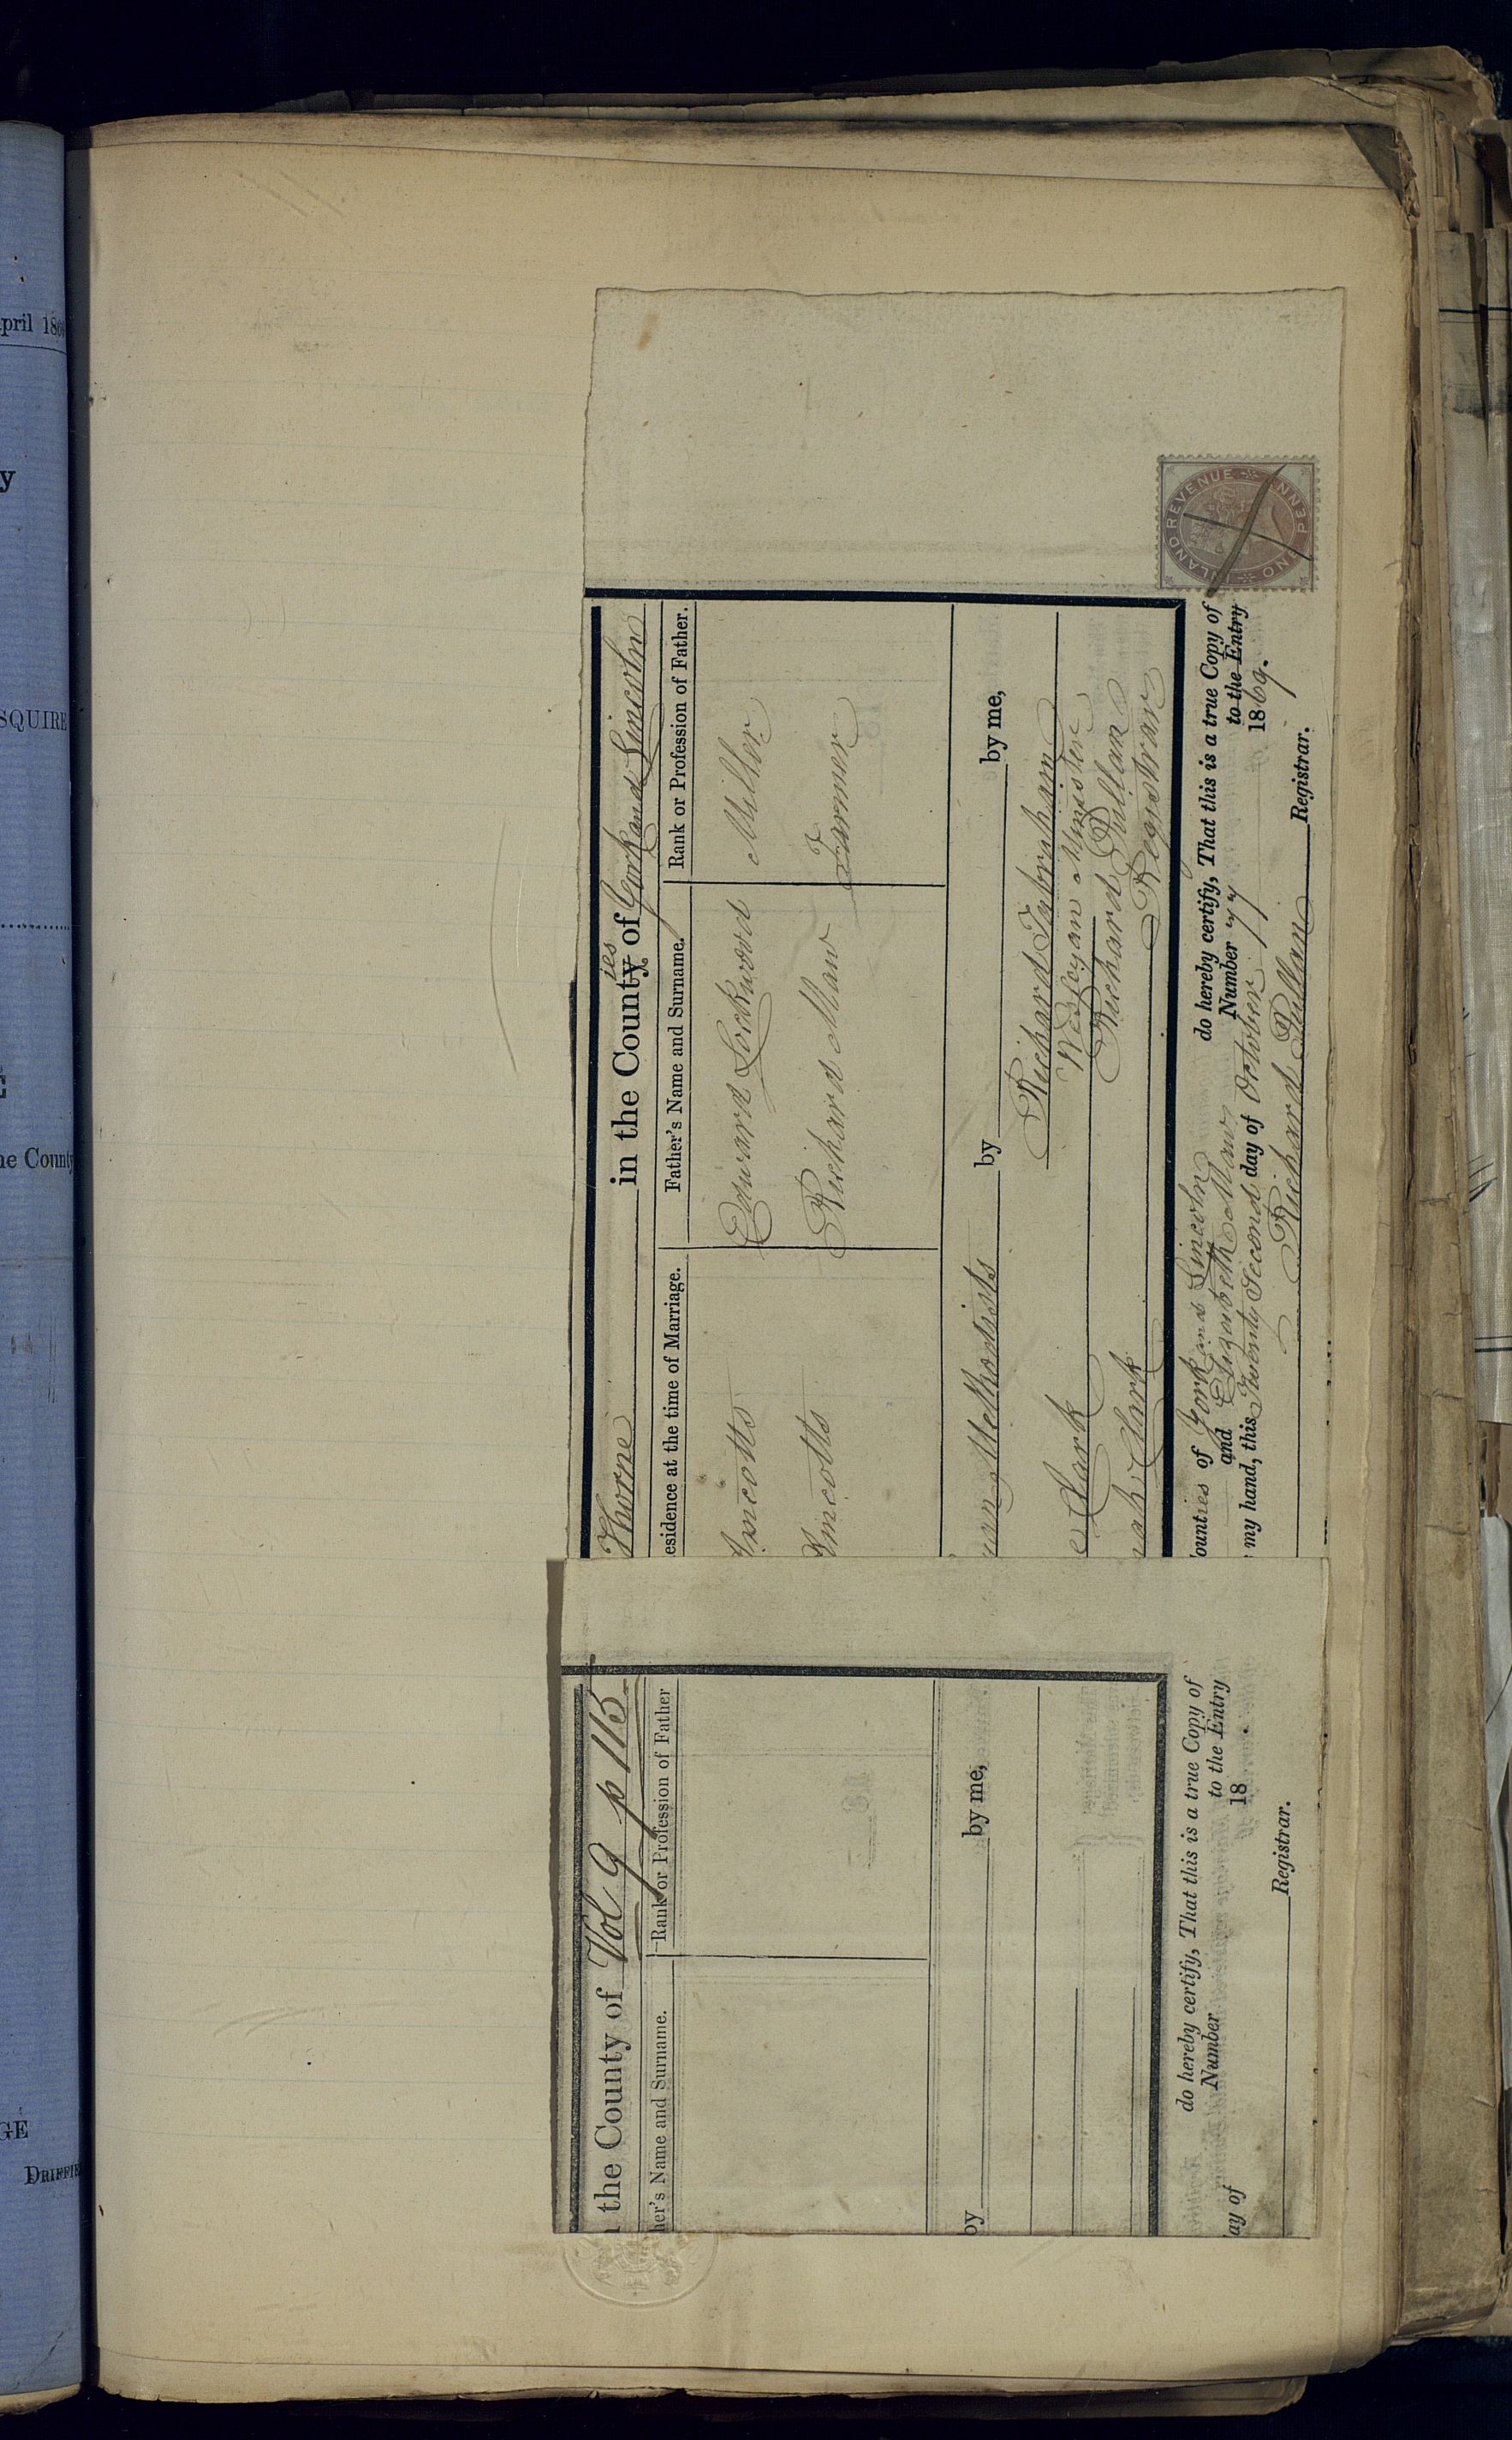 pril 186
y
SQUIRE
E
he County
GE
DRIFFIE
Thorne in the Counties of York and Lincoln
esidence at the time of Marriage. Father's Name and Surname. Rank or Profession of Father.
Amcotts Edward Lockwood Miller
Amcotts Richard Maw Farmer
yan Methodists by by me,
Richard Tabraham
e Clark Wesleyan Minister
Richard Pullan
ah Clark Registrar
Counties of York and Lincoln do hereby certify, That this is a true Copy of
and Elizabeth Maw Number 77 to the Entry
my hand, this Twenty Second day of October 1869.
Richard Pullan Registrar.
INLAND REVENUE ONE PENNY
the County of Vol 9 p 115
her's Name and Surname. Rank or Profession of Father
by by me,
do hereby certify, That this is a true Copy of
Number to the Entry
ay of 18 .
Registrar.